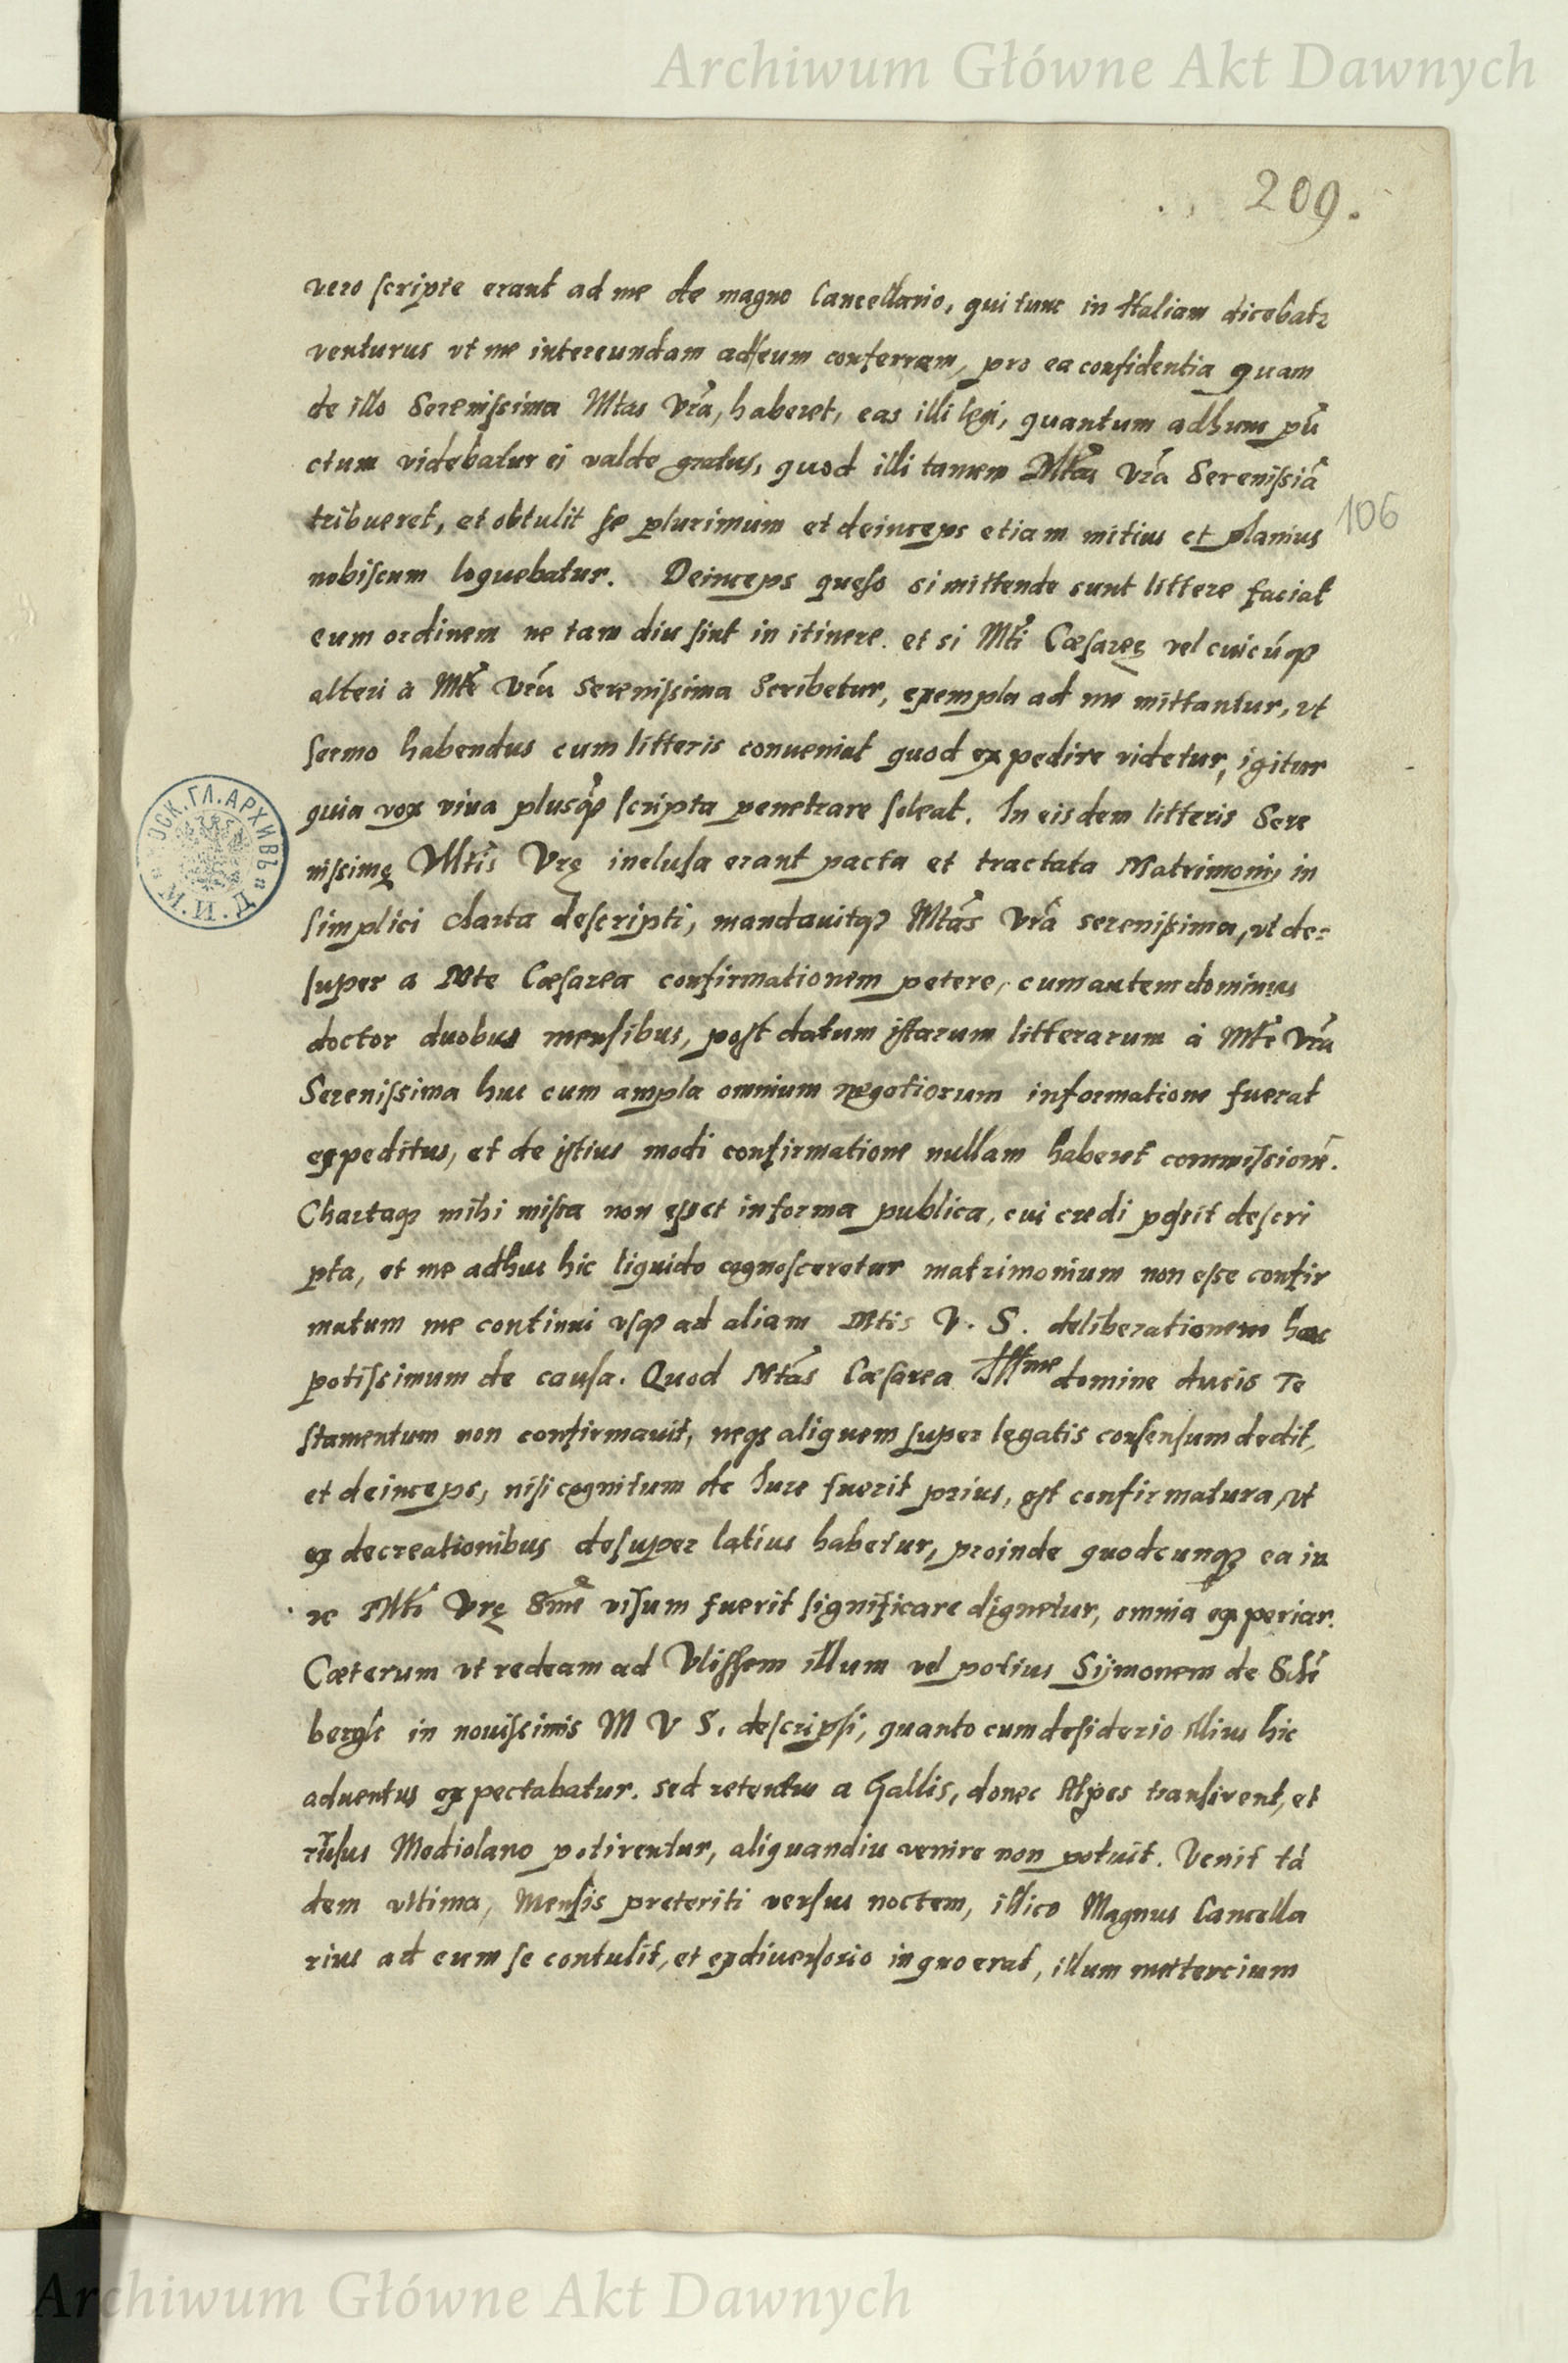 Archiwum Główne Akt Dawnych
209.
vero scripte erant ad me de magno Cancellario, qui tunc in Italiam dicebatr
venturus vt me intereundam ad eum conferram, pro ea confidentia quam
de illo Serenissima Mtas Vrã, haberet, eas illi legi, quantum ad hunc pũ
ctum videbatur ei valde gratus, quod illi tamen Mtas Vrã Serenissiã
tribueret, et obtulit se plurimum et deinceps etiam mitius et planius
106
nobiscum loquebatur. Deinceps queso si mittende sunt littere faciat
eum ordinem ne tam diu sint in itinere. et si Mti Cæsareę vel cuicúqȝ
alteri à Mte Vrã Serenissima Scribetur, exempla ad me mittantur, vt
sermo habendus cum litteris conueniat quod expedire videtur, igitur
quia vox viua plusq̃ scripta penetrare soleat. In eisdem litteris Sere
nissimę Mtis Vrę inclusa erant pacta et tractata Matrimonij in
simplici charta descripti, mandauitqȝ Mtas Vrã serenissima, vt de=
super a Mte Cæsarea confirmationem petere, cum autem dominus
doctor duobus mensibus, post datum istarum litterarum à Mte Vrã
Serenissima huc cum ampla omnium negotiorum informatione fuerat
expeditus, et de istius modi confirmatione nullam haberet commissionē.
Chartaqȝ mihi missa non esset in forma publica, cui credi possit descri
pta, et me adhuc hic liquido cognosceretur matrimonium non esse confir
matum me continui vsqȝ ad aliam Mtis V. S. deliberationem hac
potissimum de causa. Quod Mtas Cæsarea Illme domine ducis Te
stamentum non confirmauit, neqȝ aliquem super legatis consensum dedit,
et deinceps, nisi cognitum de Iure fuerit prius, est confirmatura, vt
ex decreationibus desuper latius habetur, proinde quodcunqȝ ea in
re Mti Vrę Sme visum fuerit significare dignetur, omnia experiar.
Cæterum vt redeam ad Vlissem illum vel potius Sijmonem de Schē
bergk in nouissimis M V S. descripsi, quanto cum desiderio illius hic
aduentus expectabatur. sed retentus a Gallis, donec Alpes transirent, et
rūsus Mediolano potirentur, aliquandiu venire non potuit. Venit tã
dem vltima, Mensis preteriti versus noctem, illico Magnus Cancella
rius ad eum se contulit, et ex diuersorio in quo erat, illum mettercium
Archiwum Główne Akt Dawnych